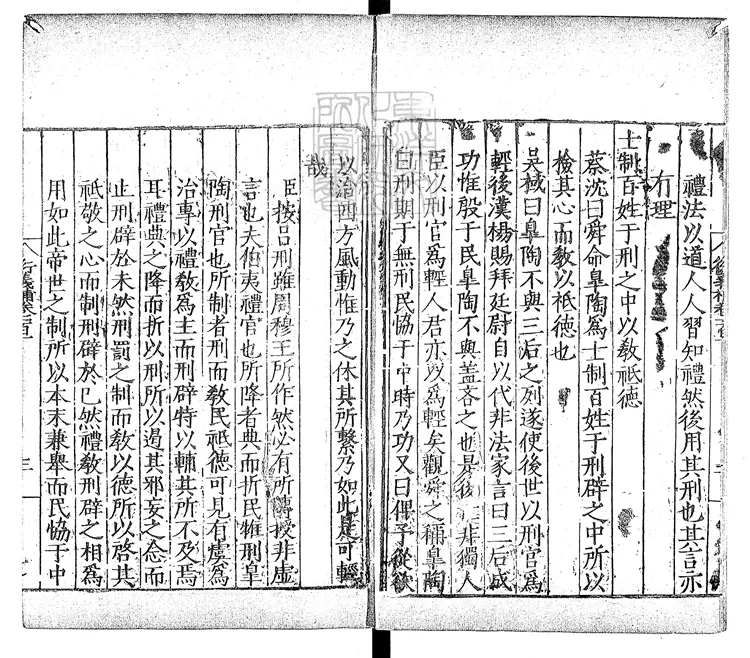 禮法以道人人習知禮然後用其刑也其言亦
有理
士制百姓于刑之中以教祗德
蔡沈曰舜命臯陶爲士制百姓于刑辟之中所以
檢其心而教以祗德也
吳棫曰臯陶不與三后之列遂使後世以刑官爲
輕後漢楊賜拜廷尉自以代非法家言曰三后成
功惟殷于民臯陶不與盖吝之也是後非獨人
臣以刑官爲輕人君亦以爲輕矣觀舜之稱臯陶
曰刑期于無刑民恊于中時乃功又曰俾予從欲
以治四方風動惟乃之休其所繫乃如此是可輕
哉
臣按吕刑雖周穆王所作然必有所傳授非虛
言也夫伯夷禮官也所降者典而折民惟刑臯
陶刑官也所制者刑而教民祗德可見有虞爲
治專以禮教爲主而刑辟特以輔其所不及焉
耳禮典之降而折以刑所以遏其邪妄之念而
止刑辟於未然刑罰之制而教以德所以啓其
祗敬之心而制刑辟於已然禮教刑辟之相爲
用如此帝世之制所以本末兼舉而民恊于中